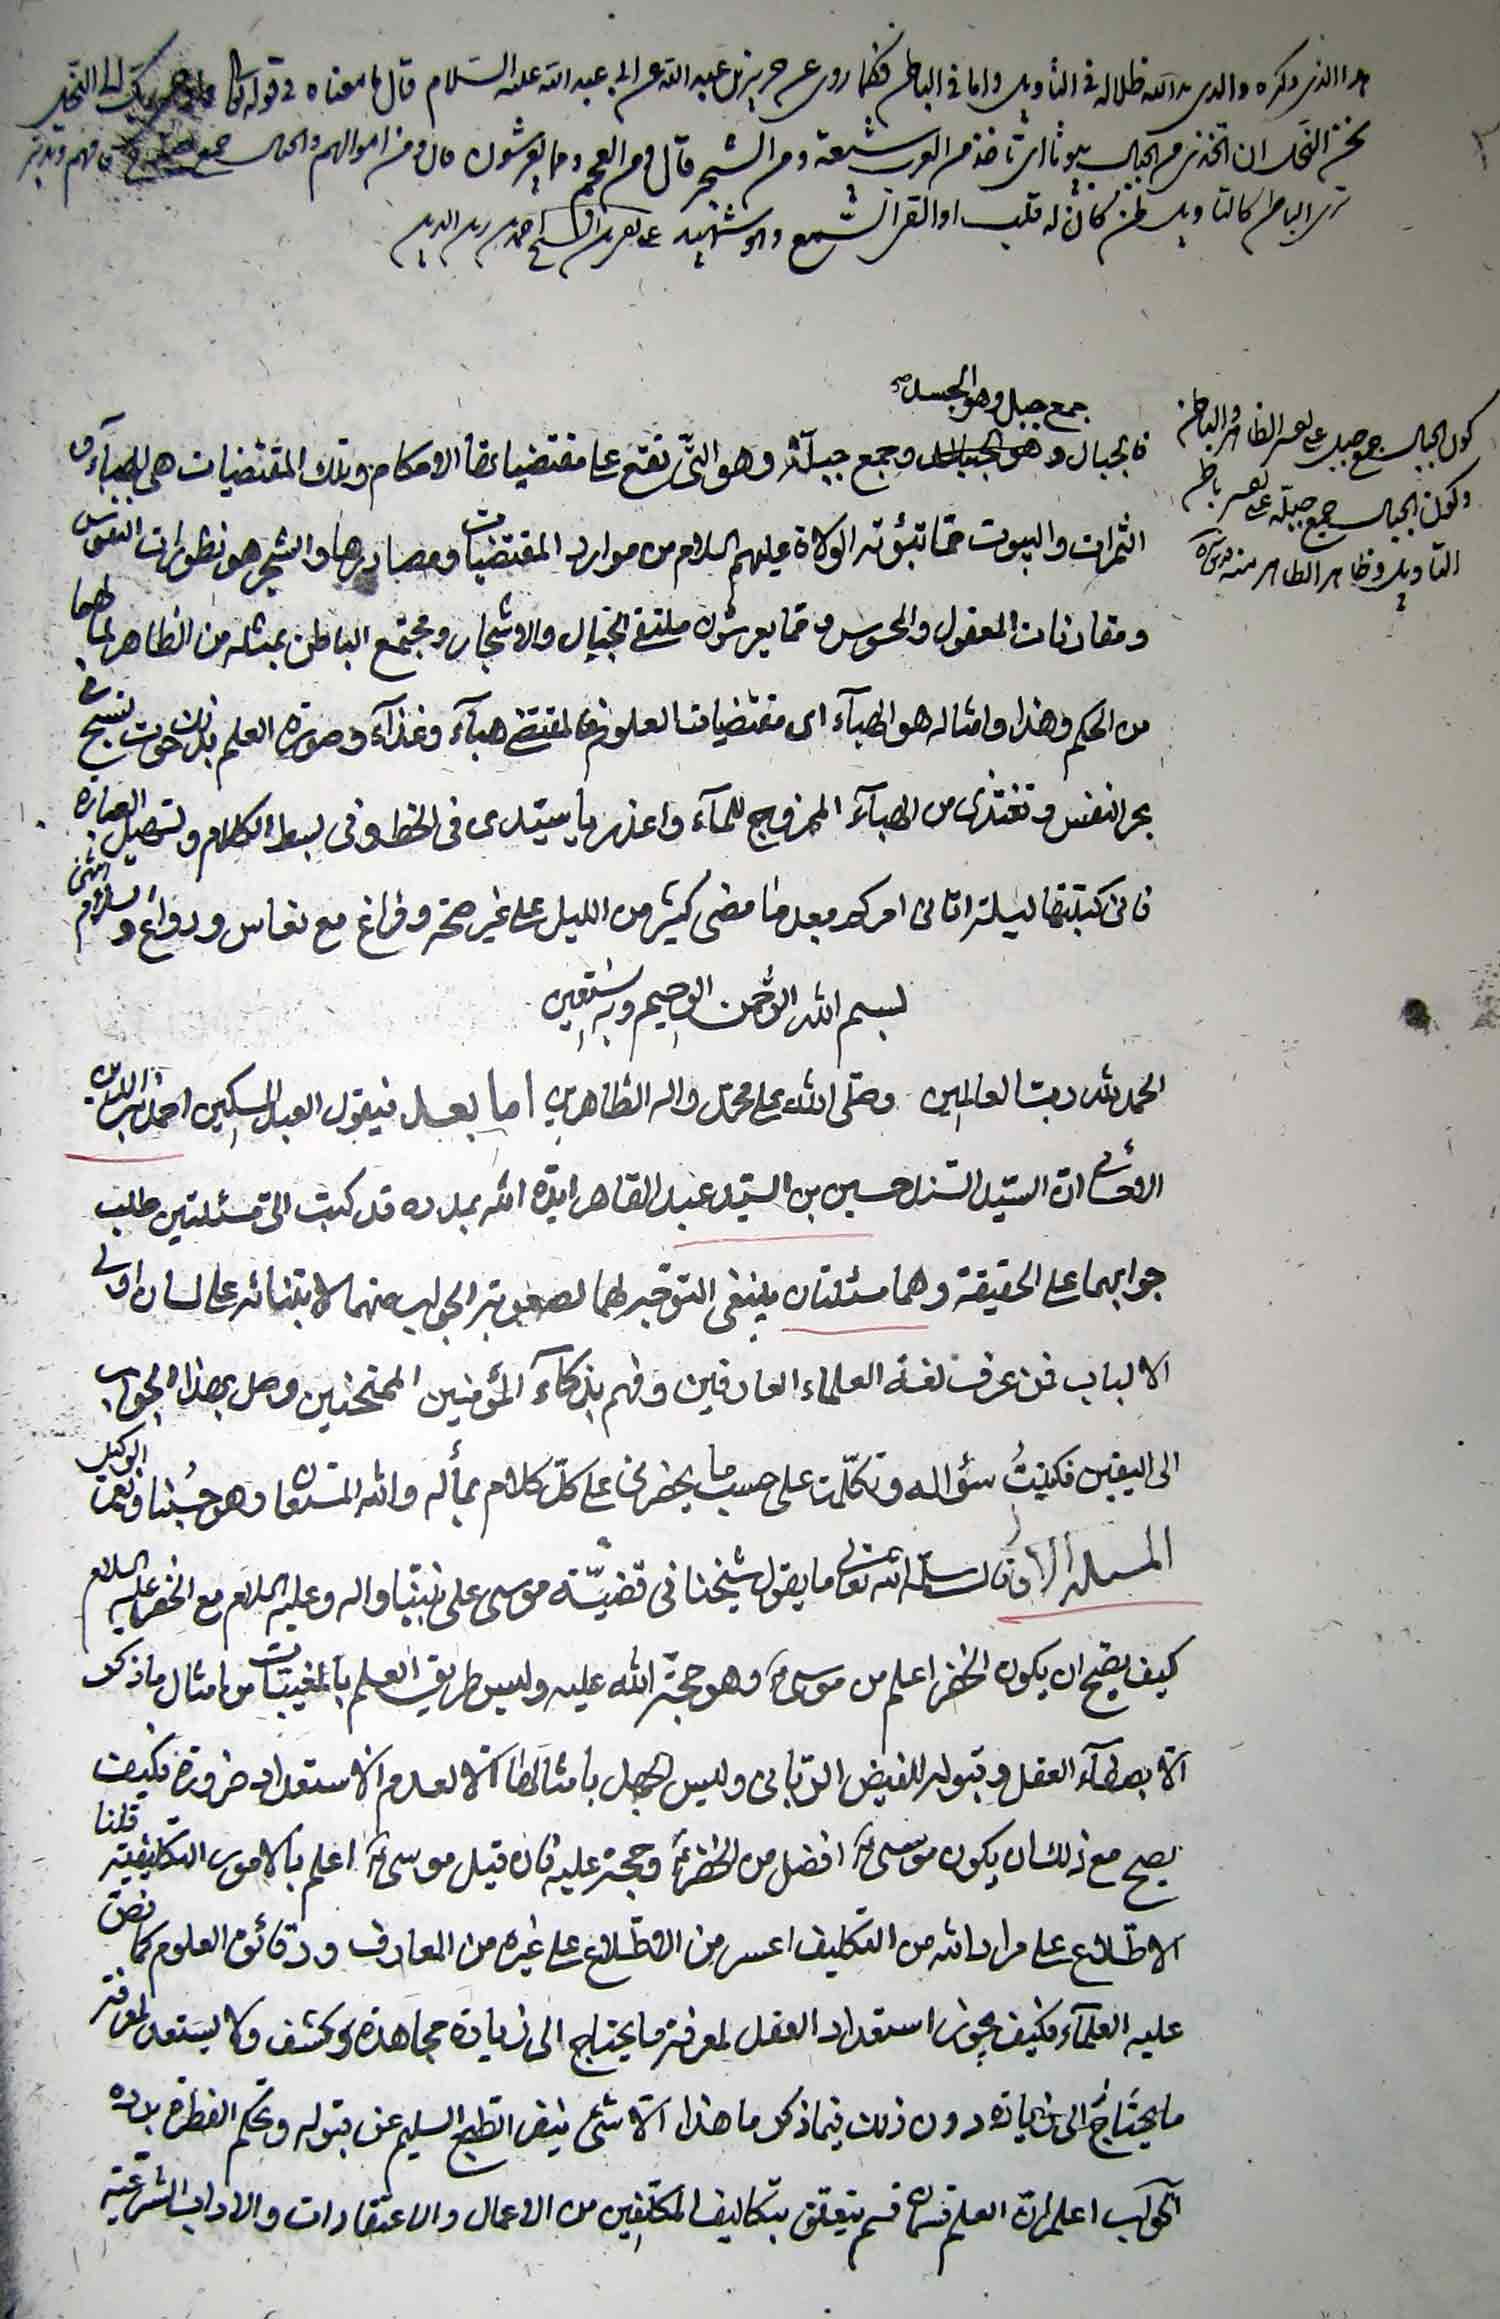 هذا الذي ذكره والدي مد الله ظلاله في التأويل واما في الباطن فكما روى عن حريز بن عبد الله عن ابي عبد الله عليه السلام قال ما معناه في قوله تعالى واوحى ربك الى النحل
نحن النحل ان اتخذي من الجبال بيوتا اي تأخذ من العرب شيعة ومن الشجر قال ومن العجم ومما يعرشون قال ومن الموالي فافهم وتدبر
ترى الباطن كالتأويل لمن كان له قلب او القى السمع وهو شهيد علي نقي بن الشيخ احمد بن زين الدين
جمع جبل وهو الجسد صح
كون الجبال جمع جبل على تفسير الظاهر والباطن
وكون الجبال جمع جبلّة على تفسير باطن
التأويل وظاهر الظاهر منه
فالجبال وجمع جبلّة وهو التي تقع على مقتضياتها الاحكام وتلك المقتضيات هي الهباء و
الثمرات والبيوت مما تبوّئه الولاة عليهم السلام من موارد المقتضيات ومصادرها والشجر هو تطورات النفوس
ومقارنات المعقول والمحسوس ومما يعرشون ملتقى الخيال والاشجار ومجتمع الباطن بمثله من الظاهر لما لهما
من الحكم وهذا وامثاله هو الهباء اي مقتضيات العلوم فالمقتضي هباء وغذاء وصورة العلم بذلك حوت تسبح في
بحر النفس وتغتذي من الهباء الممزوج للماء واعذر يا سيدي في الخط وفي بسط الكلام وتسهيل العبارة
فاني كتبتها ليلة اتاني امركم بعد ما مضى كثير من الليل على غير صحة وفراغ مع نعاس ودواع والسلام
بسم الله الرحمن الرحيم وبه نستعين
الحمد لله رب العالمين وصلى الله على محمد واله الطاهرين اما بعد فيقول العبد المسكين احمد بن زين الدين
الاحسائي ان السيد السند حسين بن السيد عبد القاهر ايده الله بمدده قد كتب الي مسئلتين طلب
جوابهما على الحقيقة وهما مسئلتان ينبغي التوجه لهما لصعوبة الجواب عنهما لابتنائه على لسان اولي
الالباب فمن عرف لغة العلماء العارفين وفهم بذكاء المؤمنين الممتحنين وصل بهذا الجواب
الى اليقين فكتبتُ سؤاله وتكلمت على حسب ما يحضرني على كل كلام بما له والله المستعان وهو حسبنا ونعم الوكيل
المسئلة الاولى قال سلمه الله تعالى ما يقول شيخنا في قضيّة موسى على نبينا واله وعليه السلام مع الخضر عليه السلام
كيف يصح ان يكون الخضر اعلم من موسى ع وهو حجة الله عليه وليس طريق العلم بالمغيبات من امثال ما ذكر
الا بصفاء العقل وقبوله للفيض الرباني وليس الجهل بامثالها الا لعدم الاستعداد ضرورة فكيف
يصح مع ذلك ان يكون موسى ع افضل من الخضر ع وحجة عليه فان قيل موسى ع اعلم بالامور التكليفية قلنا
الاطلاع على مراد الله من التكليف اعسر من الاطلاع على غيره من المعارف ودقائق العلوم كما نص
عليه العلماء فكيف يجوز استعداد العقل لمعرفة ما يحتاج الى زيادة مجاهدة وكشف ولا يستعد لمعرفة
ما يحتاج الى زيادة دون ذلك فيما ذكر ما هذا الا شيء ينفر الطبع السليم عن قبوله وتحكم الفطرة برده
الجواب اعلم ان العلم قسمان قسم يتعلق بتكاليف المكلفين من الاعمال والاعتقادات والاداب الشرعية